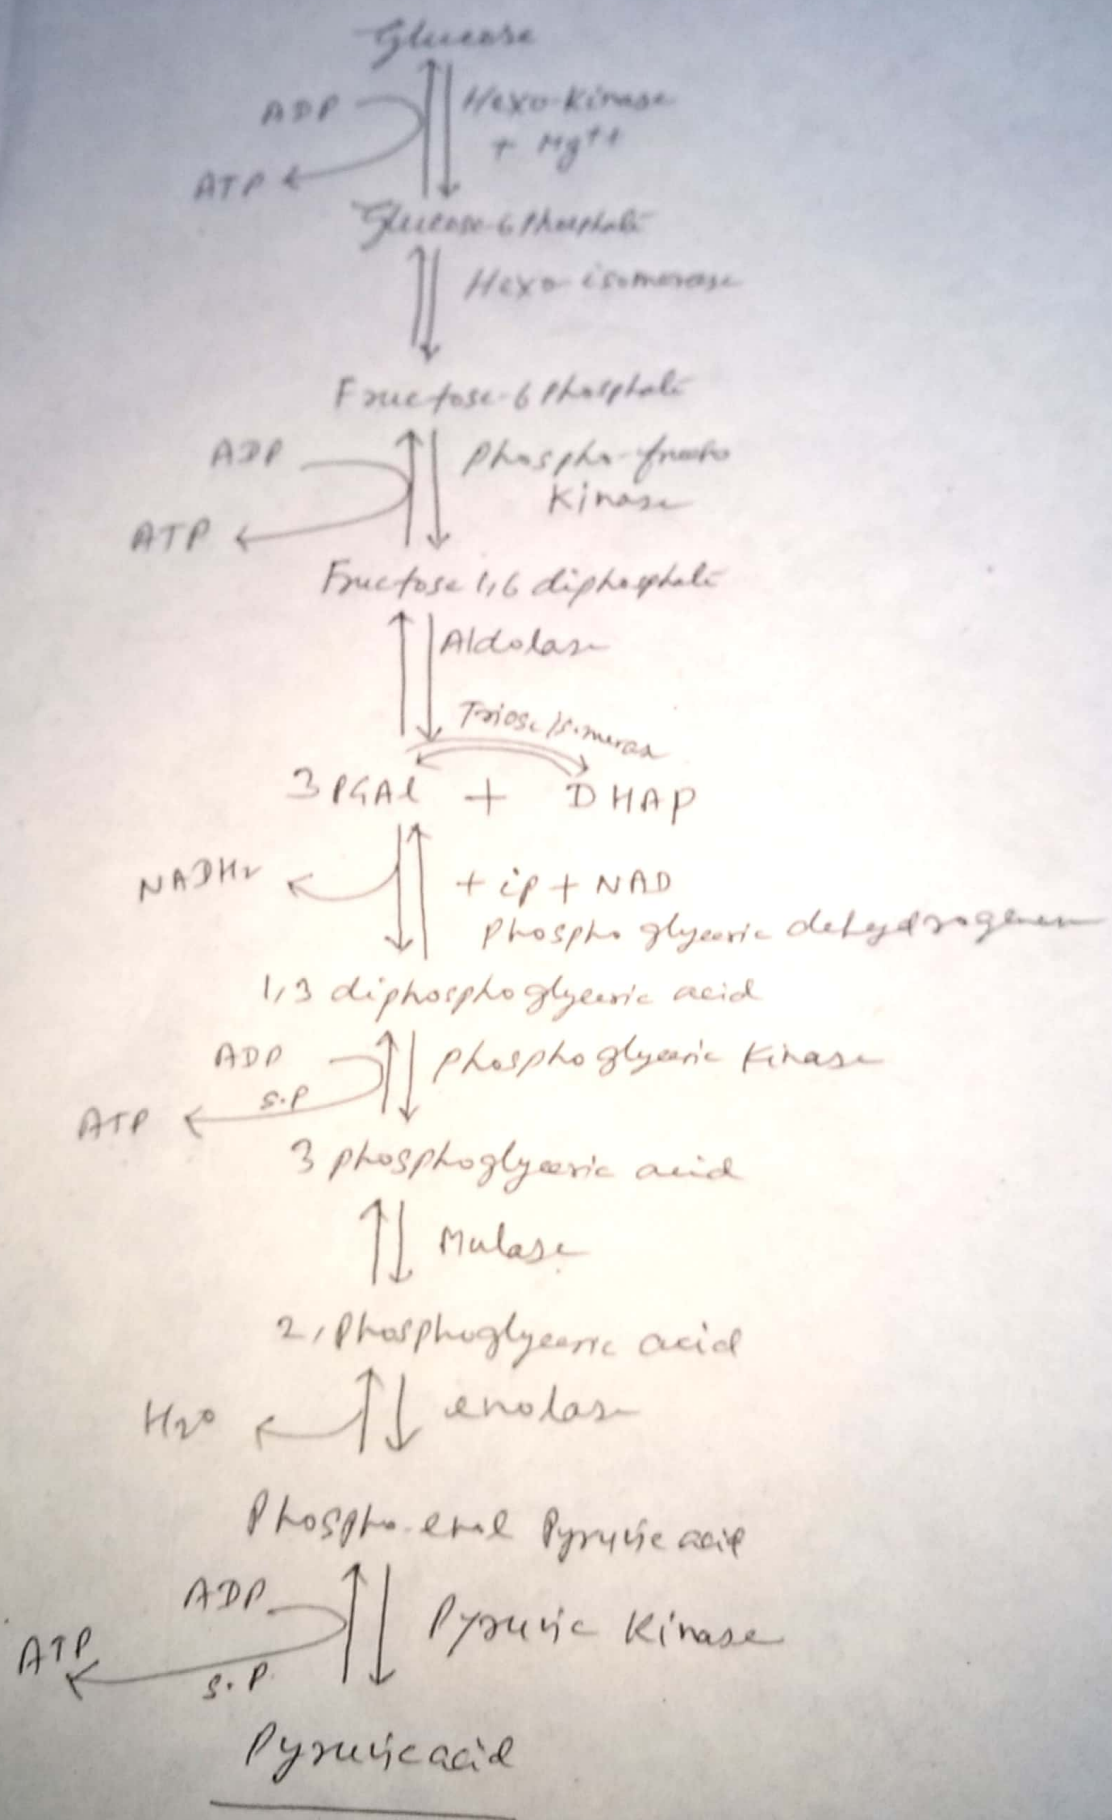 Glucose
ADP
Hexo-Kinase
+ Mg++
ATP
Glucose-6 Phosphate
Hexo-isomerase
Fructose-6 Phosphate
ADP
Phospho-fructo
Kinase
ATP
Fructose 1,6 diphosphate
Aldolase
Triose isomerase
3 PGAl + DHAP
NADH2
+ ip + NAD
Phospho glyceric dehydrogenase
1,3 diphosphoglyceric acid
ADP
phosphoglyceric Kinase
S.P
ATP
3 phosphoglyceric acid
Mutase
2, Phosphoglyceric acid
H2O
enolase
Phospho-enol Pyruvic acid
ADP
Pyruvic Kinase
ATP
S.P.
Pyruvic acid